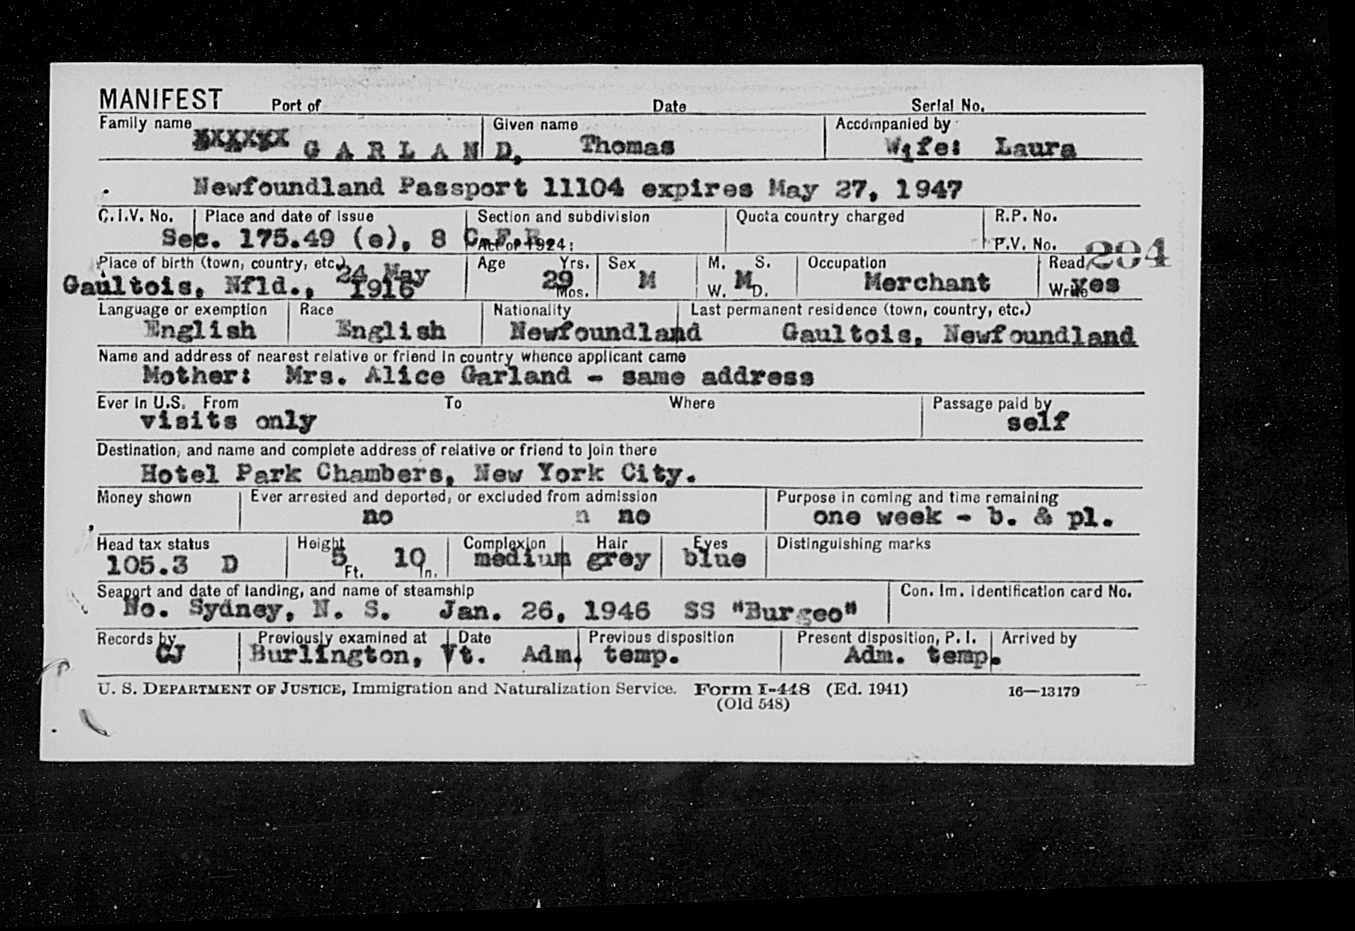 MANIFEST Port of Date Serial No.
Family name Given name Accompanied by
GARLAND, Thomas Wife: Laura
Newfoundland Passport 11104 expires May 27, 1947
C.I.V. No. Place and date of issue Section and subdivision Quota country charged R.P. No.
Sec. 175.49 (e), 8 C.F.R.
Act of 1924: P.V. No. 204
Place of birth (town, country, etc.) Age Yrs. Sex M. S. Occupation Read
Gaultois, Nfld., 24 May 1916 29 Mos. M W. M D. Merchant Write yes
Language or exemption Race Nationality Last permanent residence (town, country, etc.)
English English Newfoundland Gaultois, Newfoundland
Name and address of nearest relative or friend in country whence applicant came
Mother: Mrs. Alice Garland - same address
Ever in U.S. From To Where Passage paid by
visits only self
Destination, and name and complete address of relative or friend to join there
Hotel Park Chambers, New York City.
Money shown Ever arrested and deported, or excluded from admission Purpose in coming and time remaining
no n no one week - b. & pl.
Head tax status Height Complexion Hair Eyes Distinguishing marks
105.3 D 5 Ft. 10 In. medium grey blue
Seaport and date of landing, and name of steamship Con. Im. Identification card No.
No. Sydney, N. S. Jan. 26, 1946 SS "Burgeo"
Records by Previously examined at Date Previous disposition Present disposition, P. I. Arrived by
CJ Burlington, Vt. Adm. temp. Adm. temp.
U. S. DEPARTMENT OF JUSTICE, Immigration and Naturalization Service. Form I-448 (Ed. 1941) 16—13179
(Old 548)